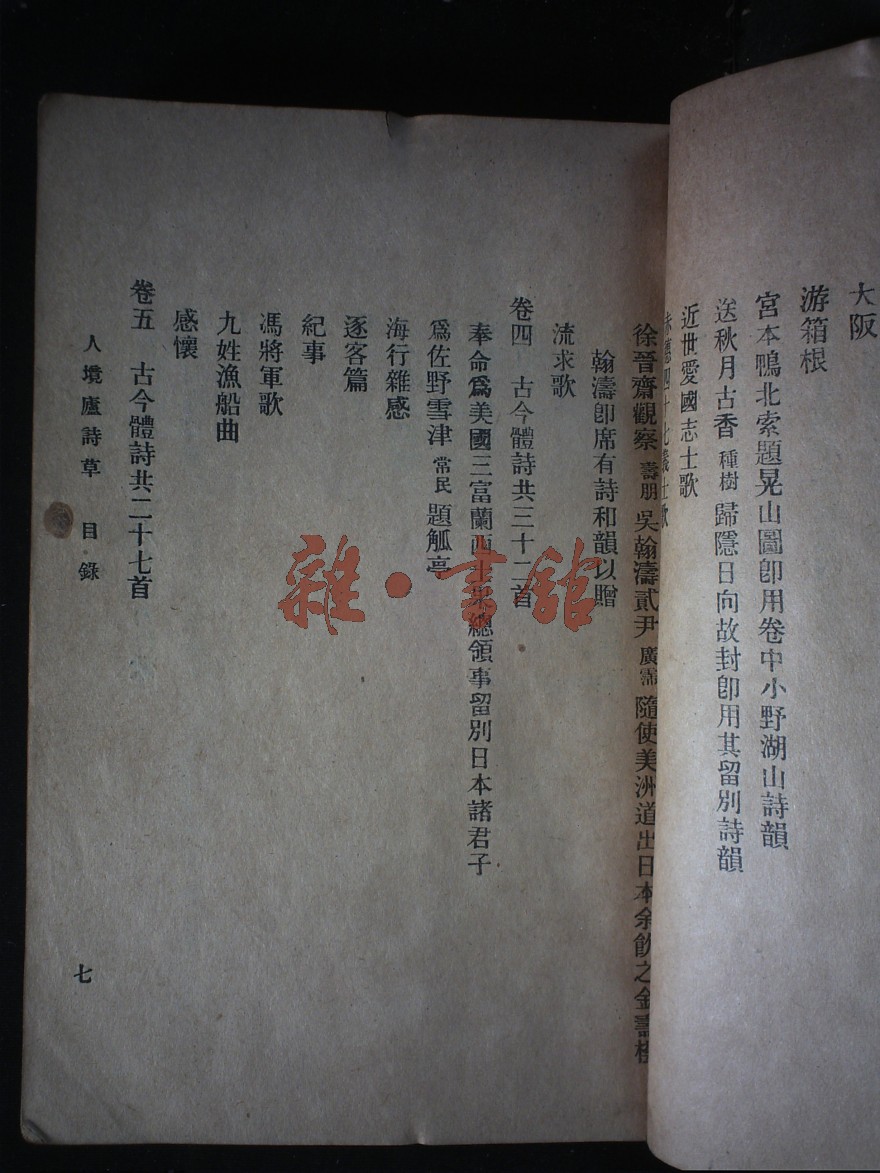 大阪
游箱根
宮本鴨北索題晃山圖卽用卷中小野湖山詩韻
送秋月古香種樹歸隱日向故封卽用其留別詩韻
近世愛國志士歌
赤穗四十七義士歌
徐晉齋觀察壽朋吳翰濤貳尹廣霈隨使美洲道出日本余飮之金壽樓
翰濤卽席有詩和韻以贈
流求歌
卷四 古今體詩共三十二首
奉命爲美國三富蘭西士果總領事留別日本諸君子
爲佐野雪津常民題觚亭
海行雜感
逐客篇
紀事
馮將軍歌
九姓漁船曲
感懷
卷五 古今體詩共二十七首
人境廬詩草 目錄
七
雜·書館